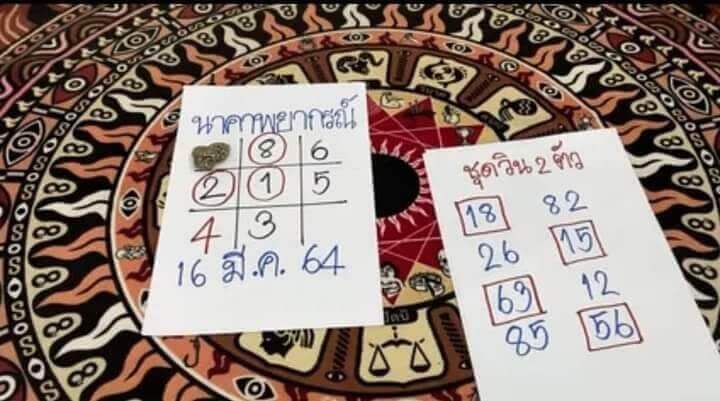 นาคาพยากรณ์
8 6
2 1 5
4 3
16 มี.ค. 64
ชุดวิน 2 ตัว
18 82
26 15
63 12
85 56